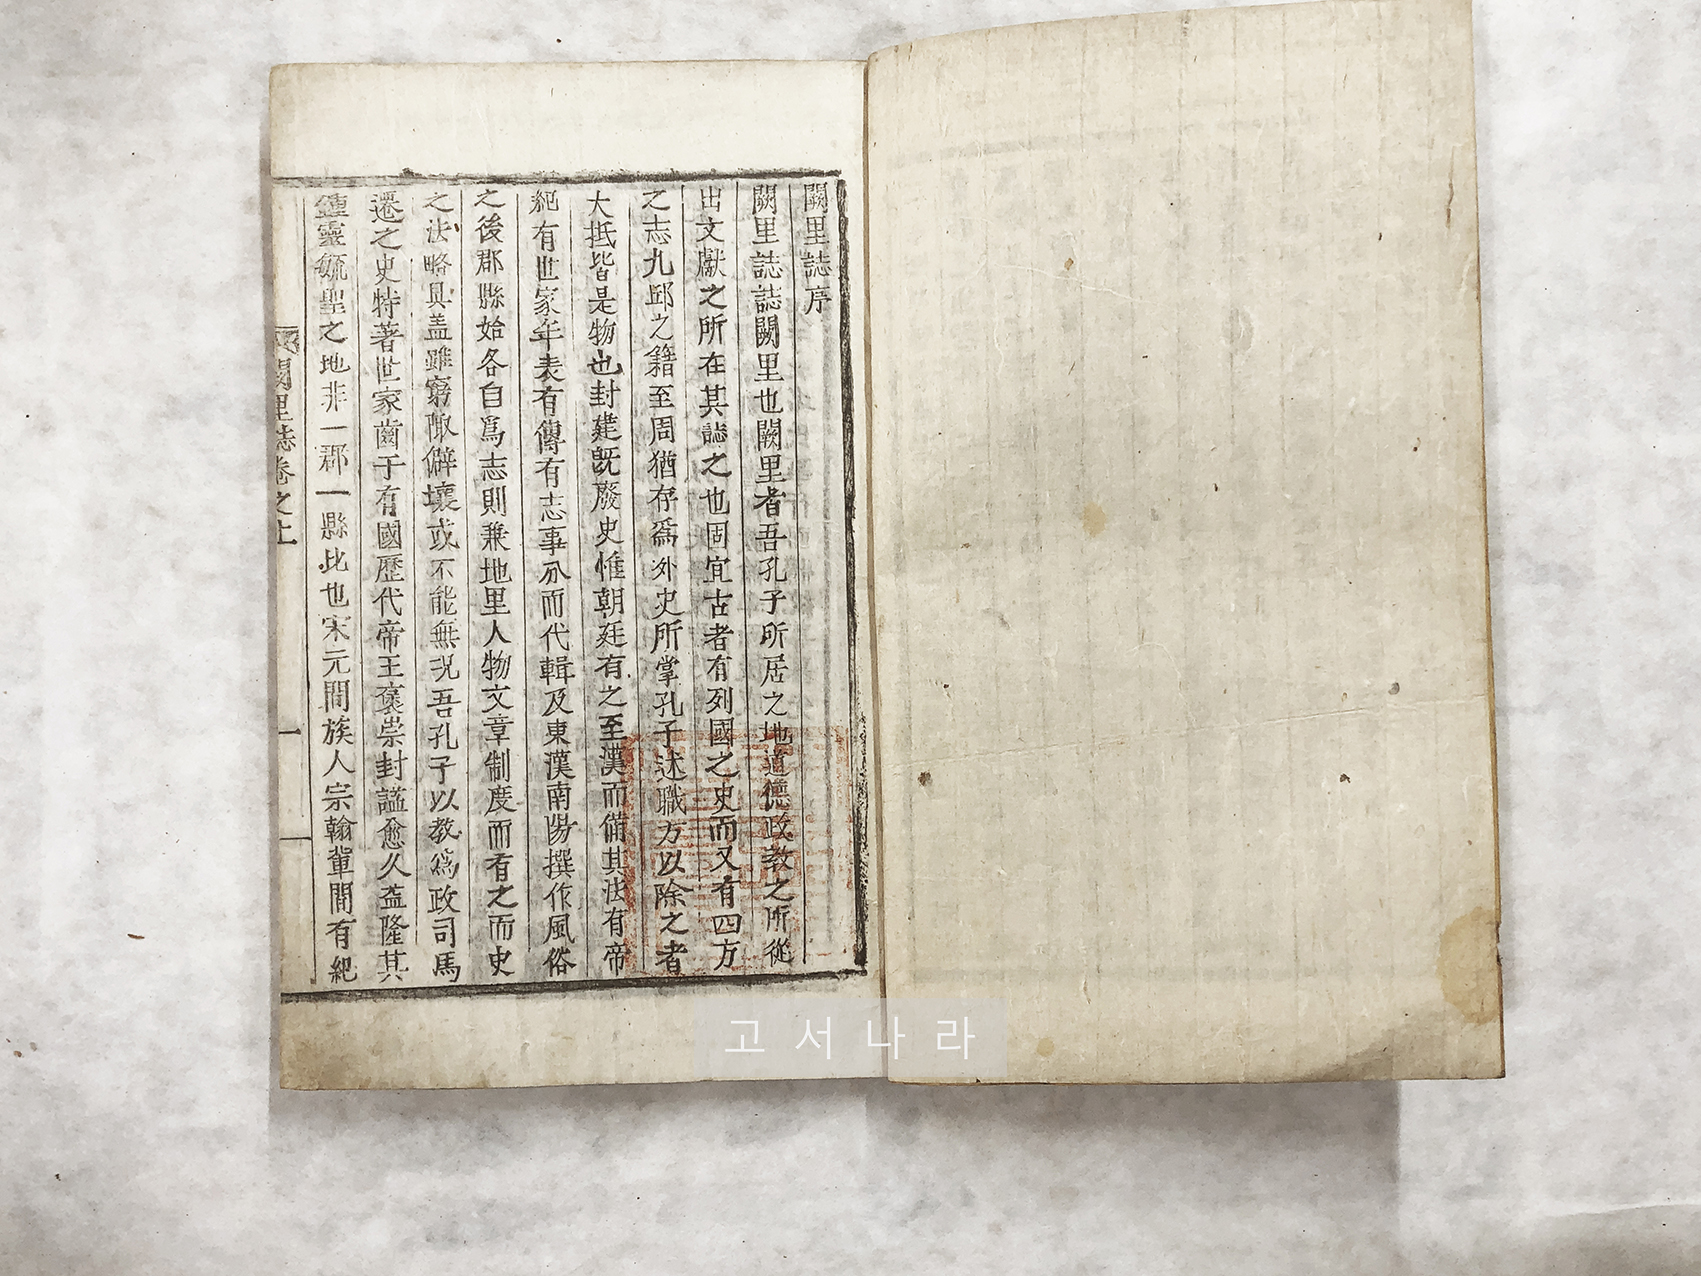 闕里誌序
闕里誌誌闕里也闕里者吾孔子所居之地道德政教之所從
出文獻之所在其誌之也固宜古者有列國之史而又有四方
之志九邱之籍至周猶存爲外史所掌孔子述職方以除之者
大抵皆是物也封建旣廢史惟朝廷有之至漢而備其法有帝
紀有世家年表有傳有志事分而代輯及東漢南陽撰作風俗
之後郡縣始各自爲志則兼地里人物文章制度而有之而史
之法略具盖雖窮陬僻壤或不能無況吾孔子以教爲政司馬
遷之史特著世家齒于有國歷代帝王褒崇封謚愈久益隆其
鍾靈毓聖之地非一郡一縣比也宋元間族人宗翰軰間有紀
闕里誌卷之上
一
고서나라